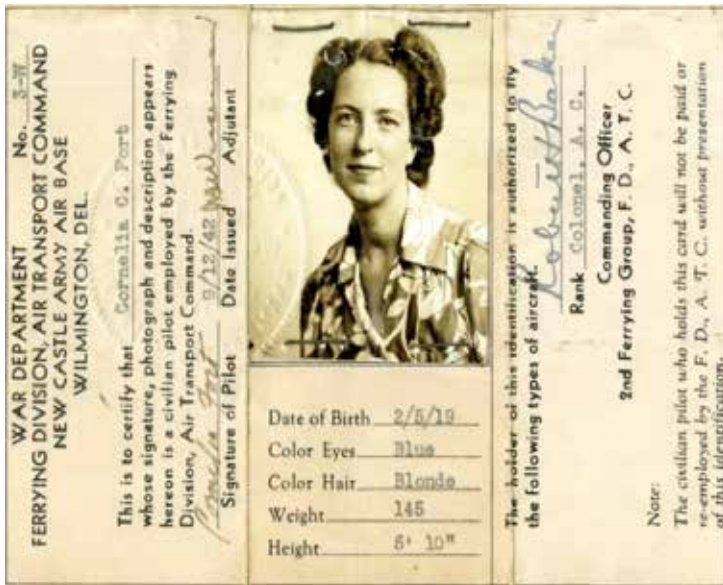 No. 3-W
WAR DEPARTMENT
FERRYING DIVISION, AIR TRANSPORT COMMAND
NEW CASTLE ARMY AIR BASE
WILMINGTON, DEL.
This is to certify that Cornelia C. Fort
whose signature, photograph and description appears
hereon is a civilian pilot employed by the Ferrying
Division, Air Transport Command.
Cornelia Fort 9/12/42
Signature of Pilot Date Issued Adjutant
Date of Birth 2/5/19
Color Eyes Blue
Color Hair Blonde
Weight 145
Height 5' 10"
The holder of this identification is authorized to fly
the following types of aircraft.
Robert H Baker
Rank Colonel, A. C.
Commanding Officer
2nd Ferrying Group, F. D., A. T. C.
Note:
The civilian pilot who holds this card will not be paid or
re-employed by the F. D., A. T. C. without presentation
of this identification.